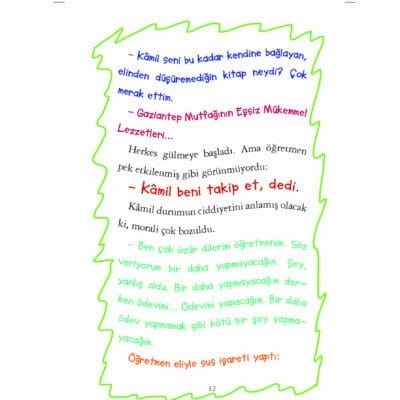 – Kâmil seni bu kadar kendine bağlayan,
elinden düşüremediğin kitap neydi? Çok
merak ettim.
– Gaziantep Mutfağının Eşsiz Mükemmel
Lezzetleri...
Herkes gülmeye başladı. Ama öğretmen
pek etkilenmiş gibi görünmüyordu:
– Kâmil beni takip et, dedi.
Kâmil durumun ciddiyetini anlamış olacak
ki, morali çok bozuldu.
– Ben çok özür dilerim öğretmenim. Söz
veriyorum bir daha yapmayacağım. Şey,
yanlış oldu. Bir daha yapmayacağım der-
ken ödevimi... Ödevimi yapacağım. Bir daha
ödev yapmamak gibi kötü bir şey yapma-
yacağım.
Öğretmen eliyle sus işareti yaptı:
12